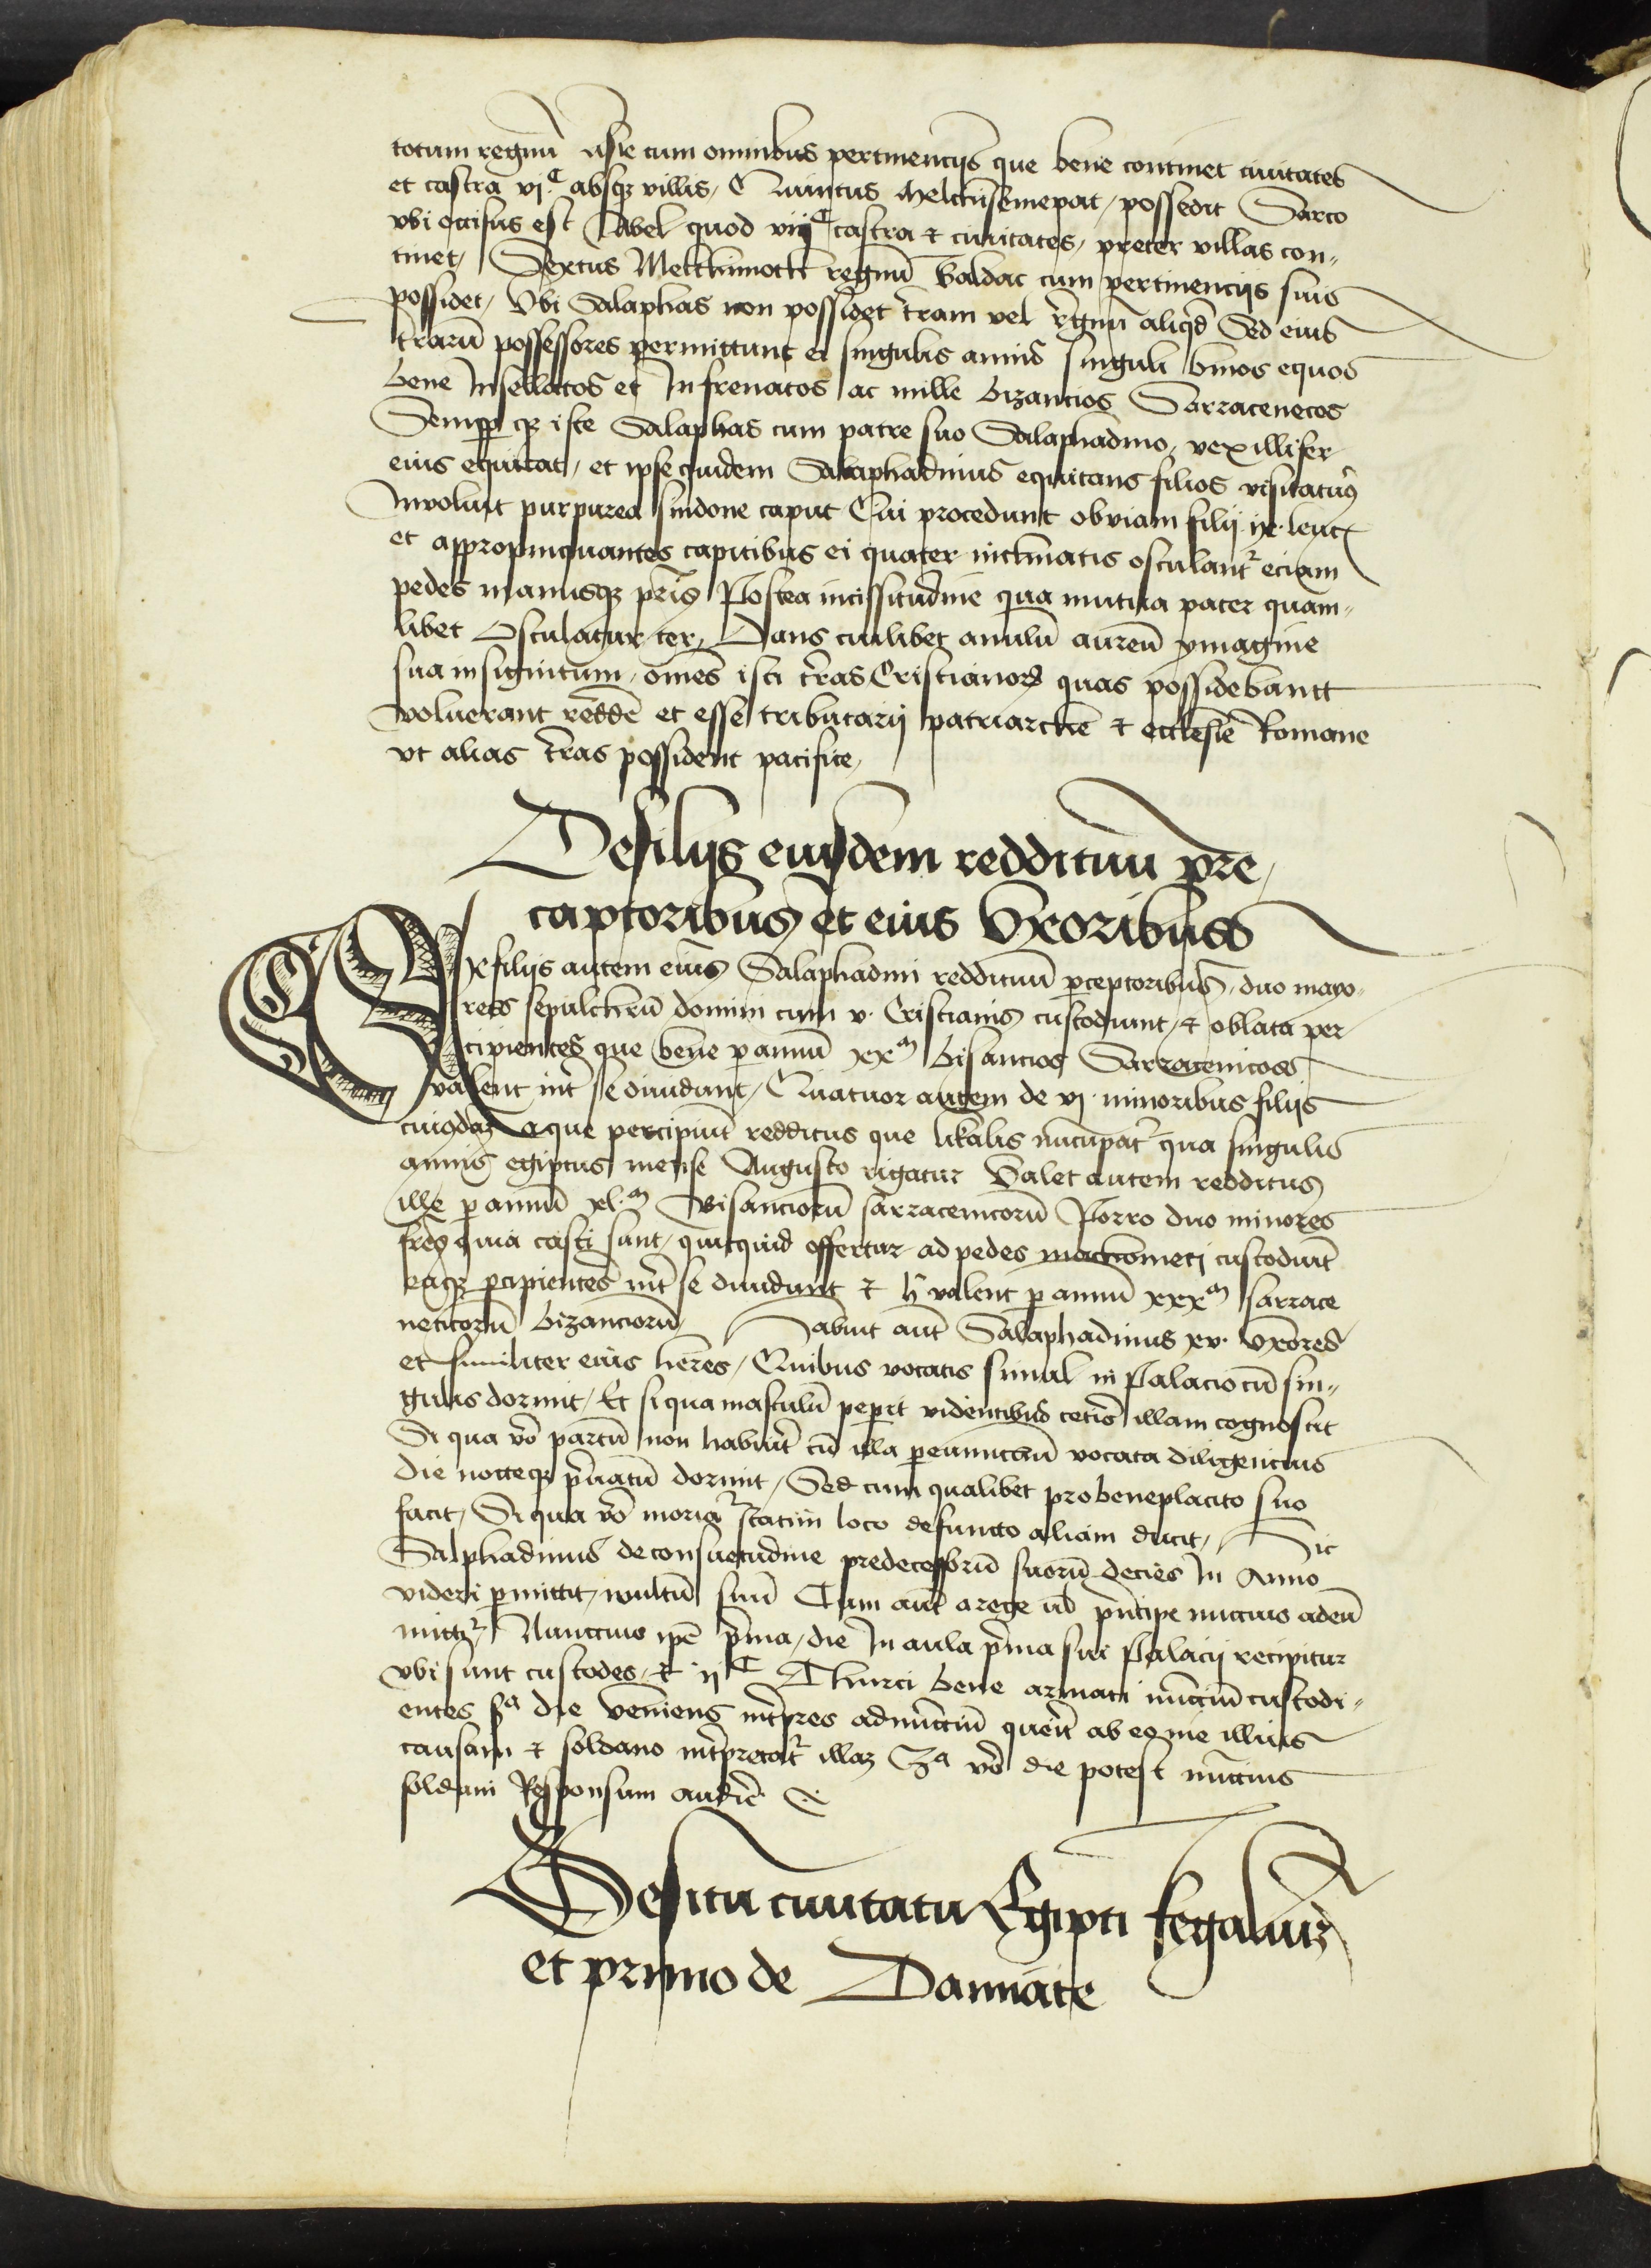 totum regnū Asie cum omnibus pertinencijs que bene continet ciuitates
et castra vj.ᶜ absqꝫ villis, Quintus Melchisemepat, possedit Sarco
vbi occisus est Abel quod viijᶜ castra & ciuitates, preter villas con„
tinet, Sextus Metthimoth regnū Baldac cum pertinencijs suis
possidet, Vbi Salaphas non possidet t̄ram vel r̄gnū aliqd̄ Sed eius
t̄rarū possessores permittunt ei singulis annis singuli binos equos
bene Insellatos et Infrenatos ac mille bizantios Sarracenecos
Semp̲ qꝫ iste Salaphas cum patre suo Salaphadino, vexillifer
eius equitat, et ipse quidem Salaphadinus equitans filios visitatur̄ꝰ
Inuoluit purpurea sindone caput Cui procedunt obuiam filij ix. leuc̄
et appropinquantes capitibus ei quater inclinatis osculant̄ᷣ eciam
pedes manusqꝫ pr̄is Postea vicissitudine qua mutua pater quam„
libet Osculatur ter, Dans cuilibet anulū aureū ymagine
sua insignitum, om̄es isti t̄ras Cristianorꝝ quas possidebantt
voluerant redde̅ et esse tributarij patriarche & ecclesie Romane
vt alias t̄ras possident pacifice,
De filijs eiusdem reddituu̅ pre„
captoribus et eius Vxoribuss
Ex filijs autem eius Salaphadini reddituū p̲ceptoribus, duo mayo„
res sepulchrū domini cum v. Cristianis custodiunt, & oblata per
cipientes que bene p̲ annū xxᵐ bisancios Sarracenicos
valent int̄ se diuidunt, Quatuor autem de vj. minoribus filijs
cuiꝰdaꝫ aque percipiūt redditus que likalis nūcupat̄ᷣ qua singulis
annis egiptus mense Augusto rigatur Valet autem redditus
ille p̲ annū xl.ᵐ Bisanciorū sarracenicorū Porro duo minores
fr̄es quia casti sunt, quicquid offertur ad pedes machometi custodiūt
eaqꝫ p̲cipientes int̄ se diuidunt & h̄ valent p̲ annū xxxᵐ sarrace
neticorū bizanciorū, Habuit aut̄ Salaphadinus xv. vxores
et similiter eius heres, Quibus vocatis simul in Palacio cū sin„
gulis dormit, Et si qua masculū pep̲it videntibus cetīs illam cognoscit
Si qua vō partū non habuit̄ cū illa p̲ eunuchū vocata diligencius
die nocteqꝫ p̄uatū dormit, Sed cum qualibet pro beneplacito suo
facit, Si qua vō moriat̄ᷣ statim loco defuncto aliam ducit, Hic
Salphadinus de consuetudine predecessorū suorū decies In Anno
videri p̲mittit, wultū suū Cum aut̄ a rege ul̄ p̄ncipe nuccius ad eū
mittitᷣ, Nunccius ip̄e p̄ma, die In aula p̄ma sui Palacij recipitur
vbi sunt custodes, & ijᶜ Thurci bene armati nūcciū custodi„
entes 2ᵃ die veniens int̄pres ad nūcciū querit̄ ab eo vie illius
causam & soldano int̄pretat̄ᷣ illaꝫ 3ᵃ vō die potest nūccius
soldani Responsum audir̄e
De situ ciuitatu̅ Egipti Regaliu̅
et primo de Damiate